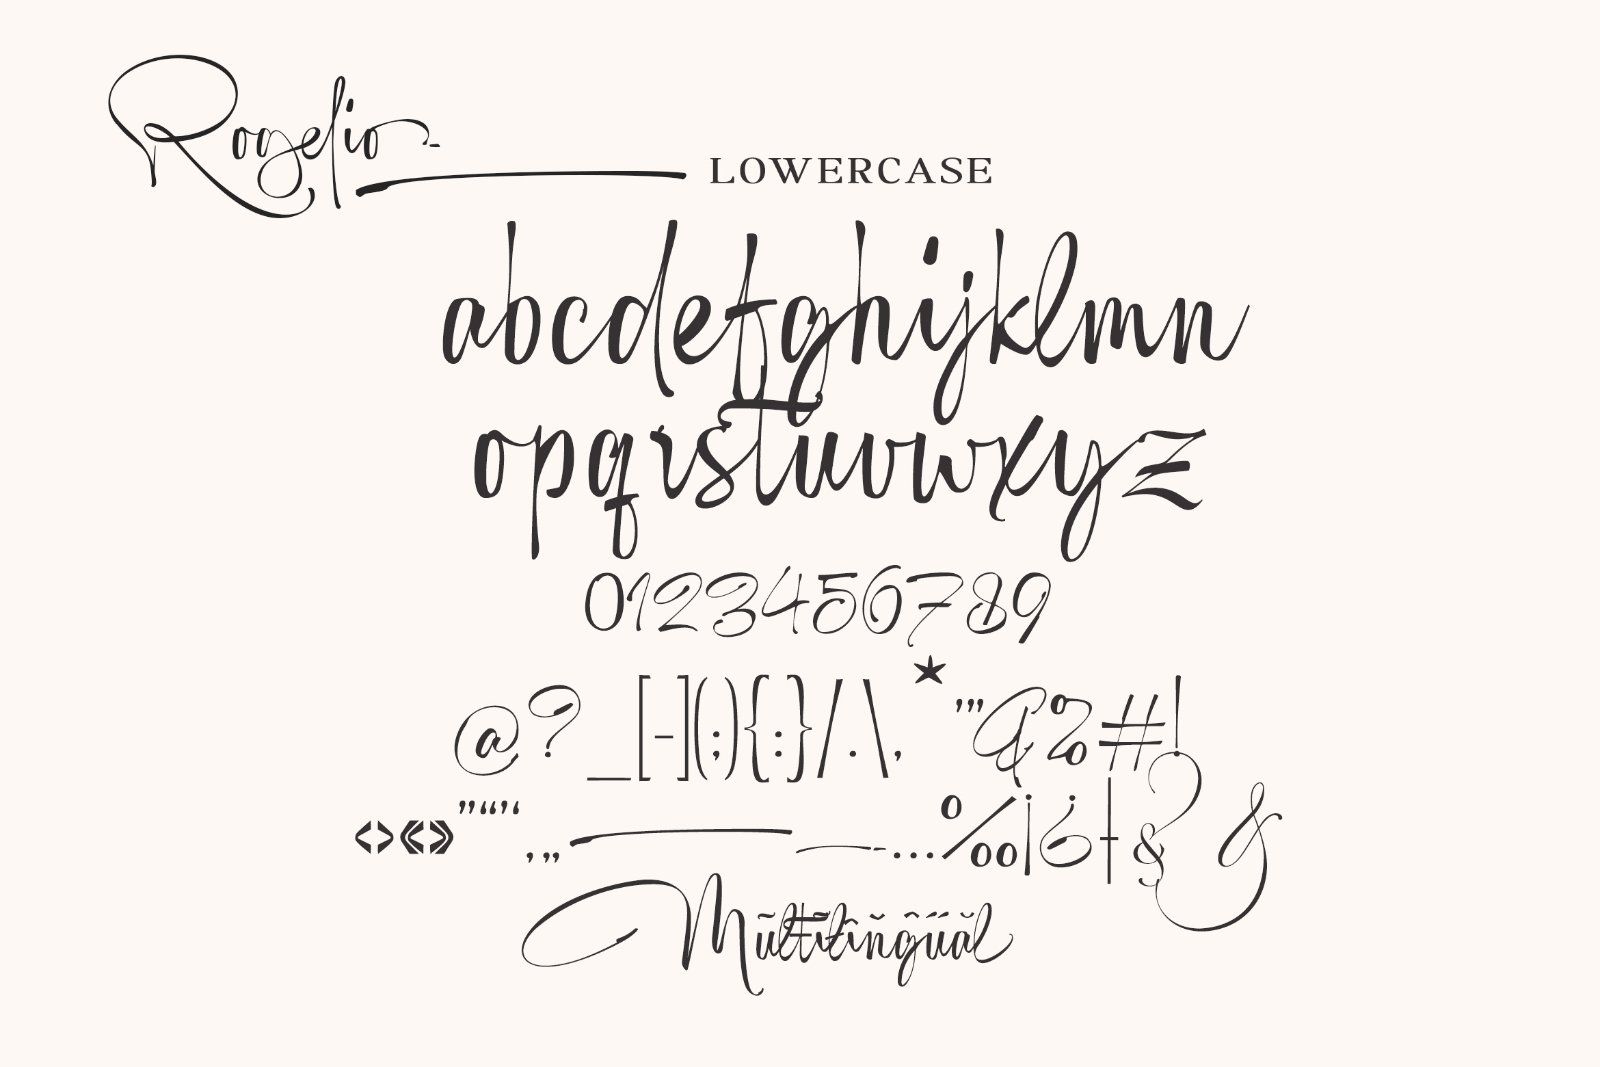 Rogelio
LOWERCASE
abcdefghijklmn
opqrstuvwxyz
0123456789
@?_[-](;){:}/.\,*'"&%#!
‹›«»"”“‘’‚„—–-…‰¡¿†&
Mũltĩlĭňĝűăl